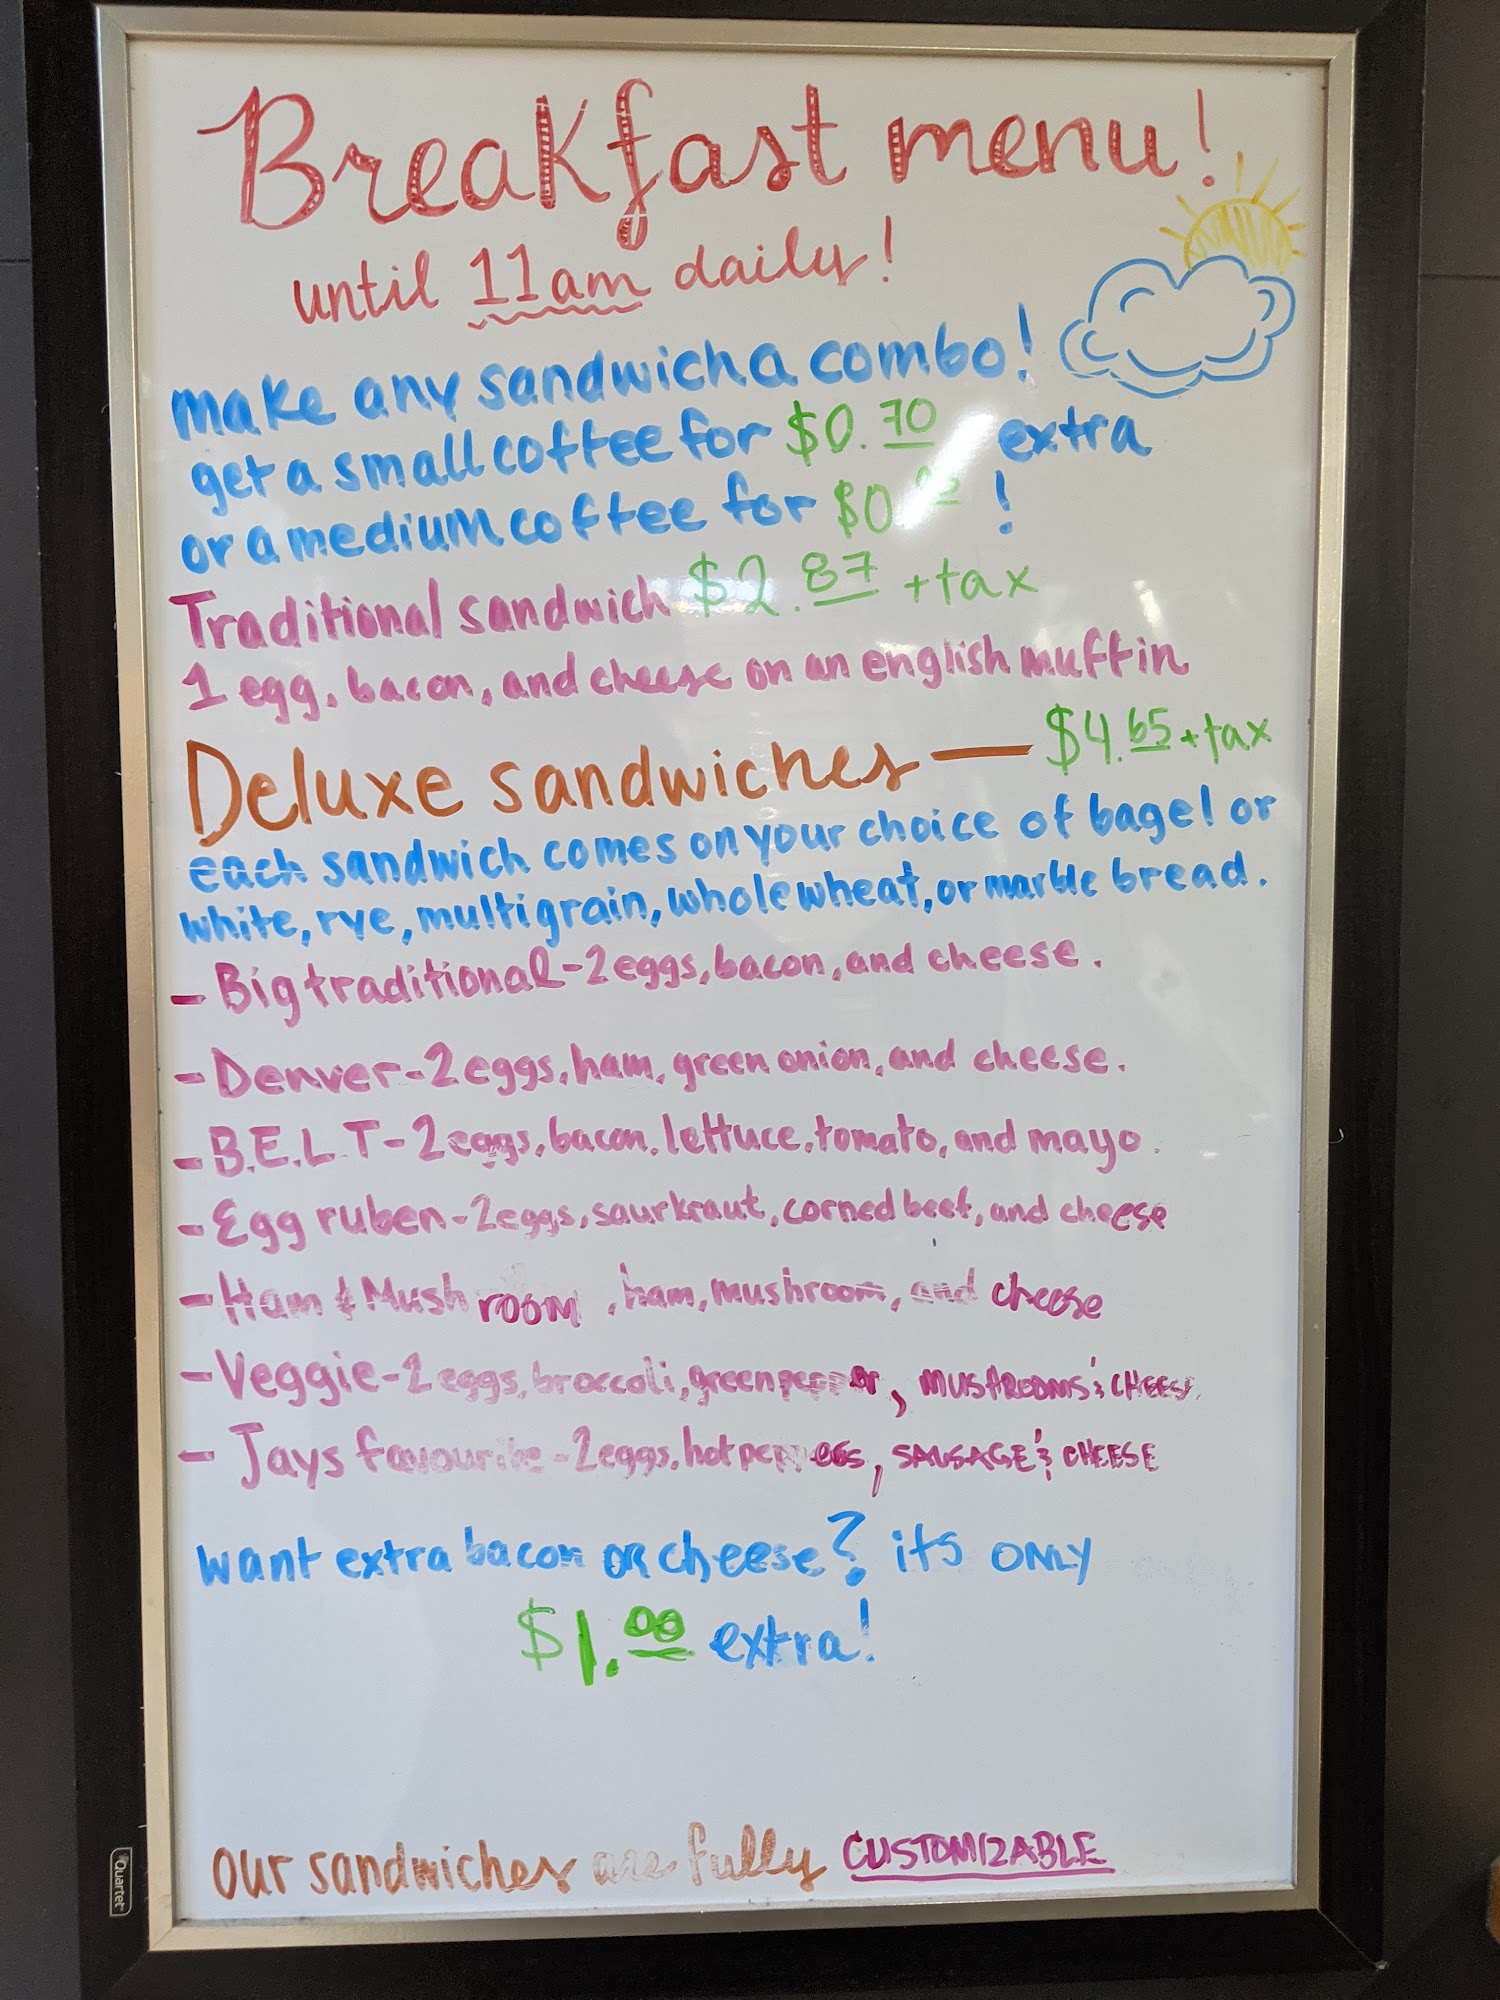 Breakfast menu!
until 11am daily!
make any sandwich a combo!
get a small coffee for $0.70 extra
or a medium coffee for $0. !
Traditional sandwich $2.87 + tax
1 egg, bacon, and cheese on an english muffin
Deluxe sandwiches — $4.65 + tax
each sandwich comes on your choice of bagel or
white, rye, multigrain, whole wheat, or marble bread.
- Big traditional - 2 eggs, bacon, and cheese.
- Denver - 2 eggs, ham, green onion, and cheese.
- B.E.L.T - 2 eggs, bacon, lettuce, tomato, and mayo.
- Egg ruben - 2 eggs, saurkraut, corned beef, and cheese
- Ham & Mushroom, ham, mushroom, and cheese
- Veggie - 2 eggs, broccoli, green pepper, MUSHROOMS & CHEESE
- Jays favourite - 2 eggs, hot peppers, SAUSAGE & CHEESE
want extra bacon or cheese? its ONLY
$1.00 extra!
our sandwiches are fully CUSTOMIZABLE
Quartet